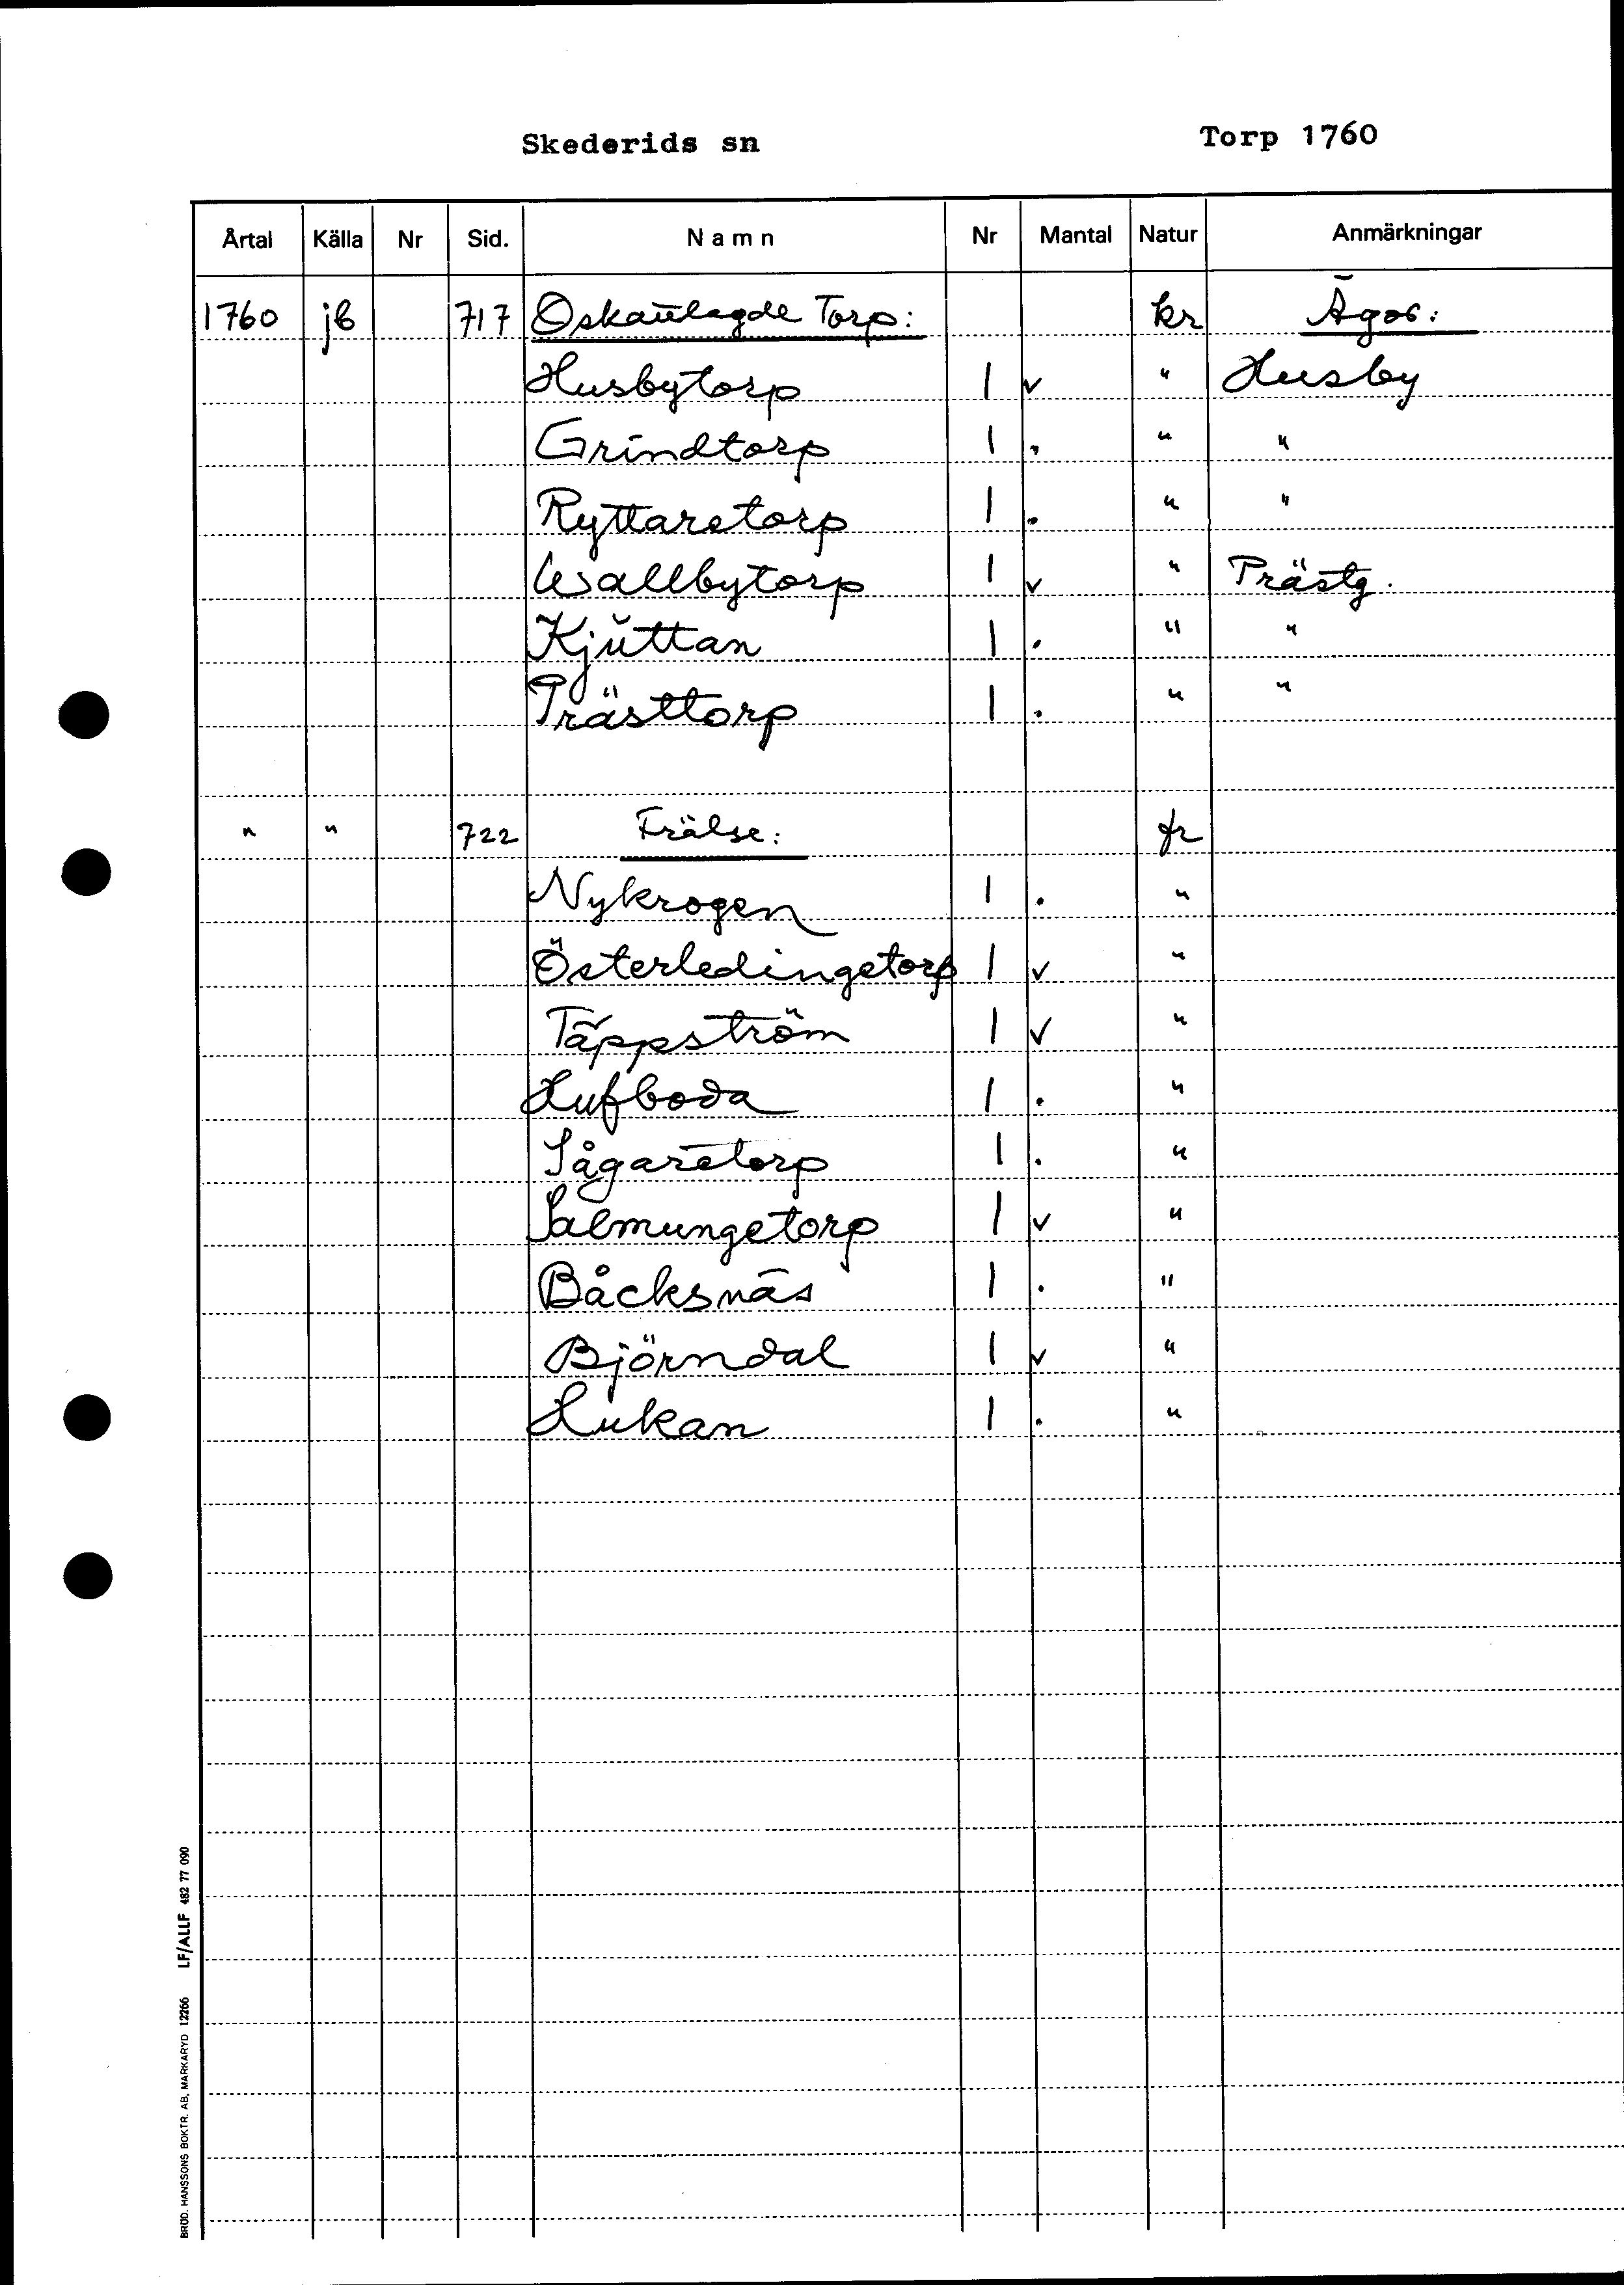 Skederids sn Torp 1760
Årtal Källa Nr Sid. Namn Nr Mantal Natur Anmärkningar
1760 jb 717 Oskattlagde Torp: kr Ägor:
Husbytorp 1 v " Husby
Grindtorp 1 . " "
Ryttaretorp 1 . " "
Wallbytorp 1 v " Prästg.
Kjuttan 1 . " "
Prästtorp 1 . " "
" " 722 Frälse: fr
Nykrogen 1 . "
Österledingetorp 1 v "
Täppström 1 v "
Lufboda 1 . "
Sågaretorp 1 . "
Salmungetorp 1 v "
Båcksnäs 1 . "
Björndal 1 v "
Lukan 1 . "
BRÖD. HANSSONS BOKTR. AB, MARKARYD 12266 LF/ALLF 482 77 090